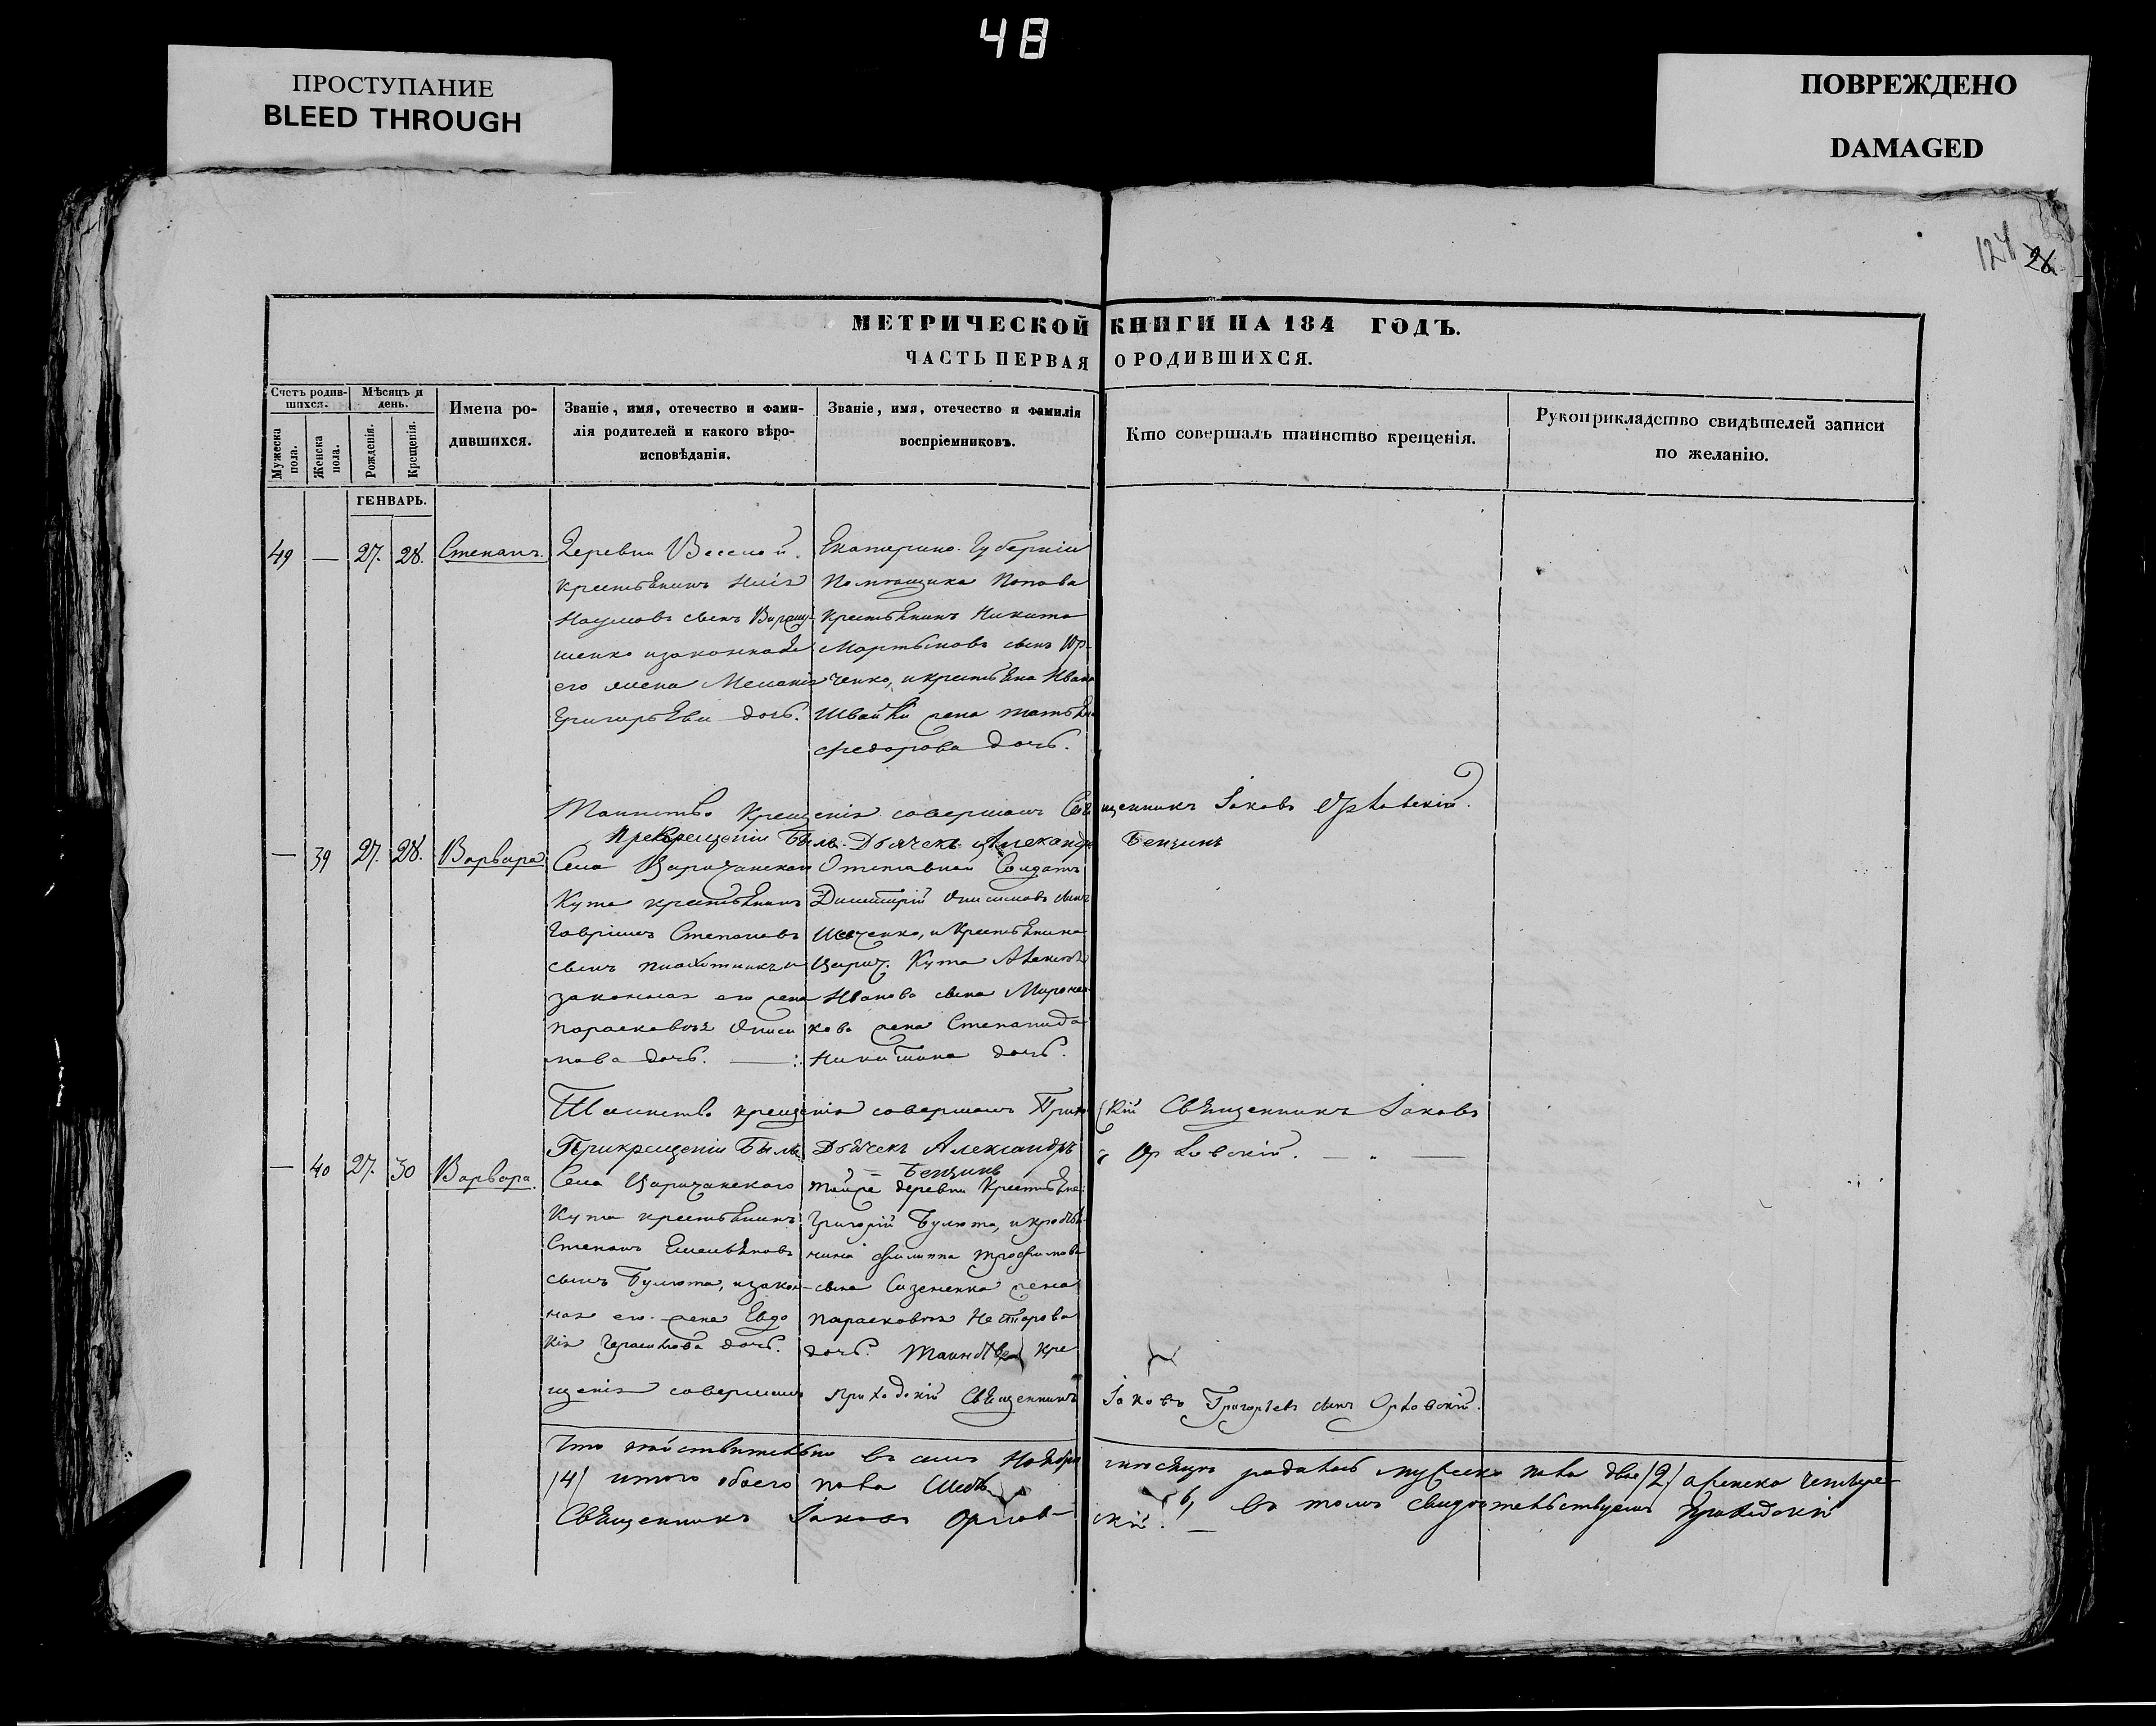 48
ПРОСТУПАНИЕ
BLEED THROUGH
ПОВРЕЖДЕНО
DAMAGED
124 28
МЕТРИЧЕСКОЙ КНИГИ НА 184 ГОДЪ.
ЧАСТЬ ПЕРВАЯ О РОДИВШИХСЯ.
Счетъ родив-
шихся.
Мужеска пола.
Женска пола.
Мѣсяцъ и
день.
Рожденія.
Крещенія.
Имена ро-
дившихся.
Званіе, имя, отечество и фами-
лія родителей и какого вѣро-
исповѣданія.
Званіе, имя, отечество и фамилія
воспріемниковъ.
Кто совершалъ таинство крещенія.
Рукоприкладство свидѣтелей записи
по желанію.
ГЕНВАРЬ.
49 — 27. 28. Степанъ.
Деревни Веселой
крестьянинъ Илія
Наумовъ сынъ
его жена Меланія
Григорьева дочь.
Екатерино. Губерніи
Помѣщика Попова
крестьянинъ Никита
Мартыновъ сынъ Юр-
ченко, и крестьяна Ивана
Швайки жена Татьяна
Федорова дочь.
Таинство Крещенія совершалъ Священникъ Іаковъ Орловскій.
При крещеніи Былъ Дьячекъ Александръ Бензинъ
— 39 27. 28. Варвара
Села Царичанскаго
Кута крестьянинъ
Гавріилъ Степановъ
сынъ и
законная его жена
Парасковія Ониси
мова дочь. —:
Отставной Солдатъ
Димитрій Онисимовъ сынъ
Шевченко, и Крестьянина
Царич. Кута
Иванова сына Мироне
кова жена Степанида
Никитина дочь.
Таинство крещенія совершалъ Приходскій Священникъ Іаковъ
Орловскій. — „ —
При крещеніи Былъ Дьячекъ Александръ
Бензинъ
— 40 27. 30 Варвара.
Села Царичанскаго
Кута крестьянинъ
Степанъ Емельяновъ
сынъ Булюта, и закон-
ная его жена Евдо
кія Герасимова дочь.
той же деревни Крестьяне:
Григорій Булюта, и крестья-
нина Филиппа Трофимова
сына Сизененка жена
Парасковія Несторова
дочь. Таинство кре
щенія совершалъ Приходскій Священникъ Іаковъ Григорьевъ сынъ Орловскій.
Что дѣйствительно въ семъ Ноябрѣ мѣсяцѣ родилось мужеска пола двое /2/ а женска четверо
/4/ итого обоего пола Шесть 6, въ томъ свидѣтельствуемъ Приходскій
Священникъ Іаковъ Орлов-скій. —